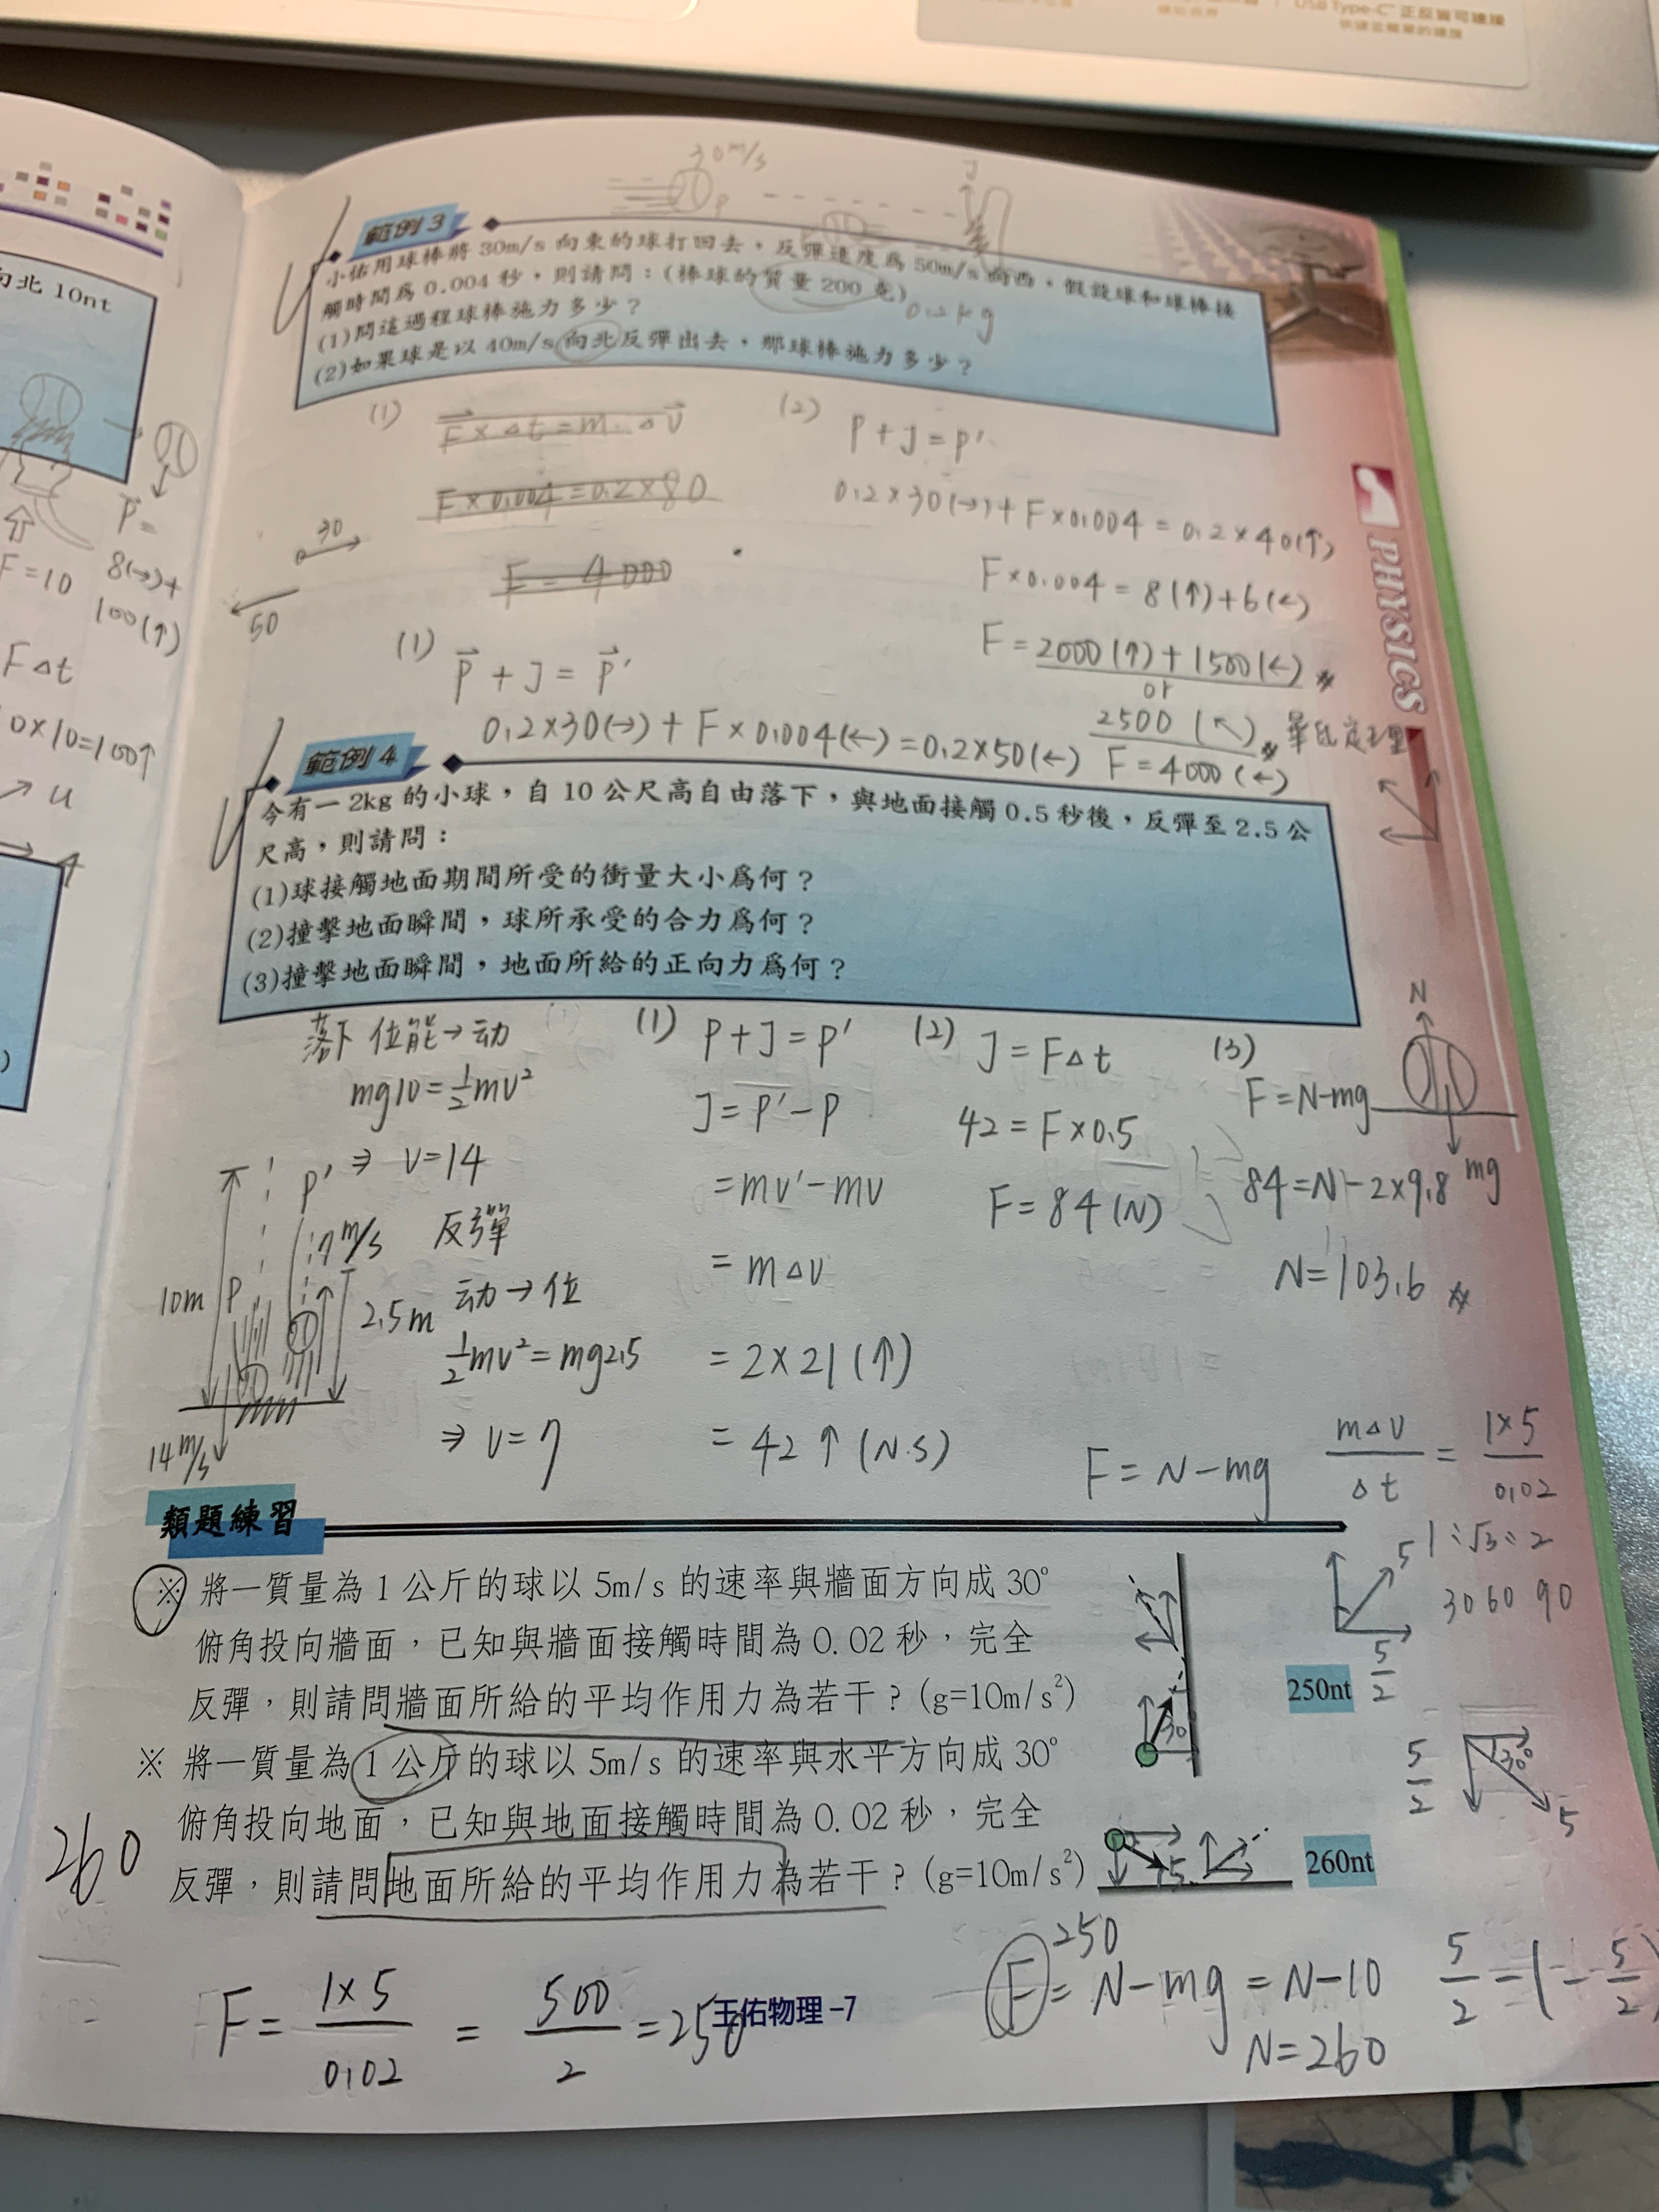 USB Type-C 正反皆可連接
30m/s
範例 3
小佑用球棒將 30m/s 向東的球打回去，反彈速度為 50m/s 向西，假設球和球棒接
觸時間為 0.004 秒，則請問：(棒球的質量 200 克)
0.2kg
(1)問這過程球棒施力多少？
(2)如果球是以 40m/s 向北反彈出去，那球棒施力多少？
向北 10nt
(1)
F×Δt=m·ΔV
F×0.004=0.2×80
F=4000
30
50
(2)
P+J=P'
0.2×30(→)+F×0.004=0.2×40(↑)
F×0.004=8(↑)+6(←)
F=2000(↑)+1500(←)
or
2500(↖)
(1)
P+J=P'
0.2×30(→)+F×0.004(←)=0.2×50(←)
F=4000(←)
P=
8(→)+
100(↑)
F=10
FΔt
0×10=100↑
u
PHYSICS
範例 4
今有一 2kg 的小球，自 10 公尺高自由落下，與地面接觸 0.5 秒後，反彈至 2.5 公
尺高，則請問：
(1)球接觸地面期間所受的衝量大小為何？
(2)撞擊地面瞬間，球所承受的合力為何？
(3)撞擊地面瞬間，地面所給的正向力為何？
落下 位能→动
mg10=½mv²
⇒ v=14
反彈
动→位
½mv²=mg2.5
⇒ v=7
P'
7m/s
10m
P
2.5m
14m/s
(1) P+J=P'
J=P'-P
=mv'-mv
=mΔv
=2×21(↑)
=42↑(N·S)
(2) J=FΔt
42=F×0.5
F=84(N)
(3)
F=N-mg
84=N-2×9.8
N=103.6
N
mg
F=N-mg
mΔv/Δt = 1×5/0.02
類題練習
※ 將一質量為 1 公斤的球以 5m/s 的速率與牆面方向成 30°
俯角投向牆面，已知與牆面接觸時間為 0.02 秒，完全
反彈，則請問牆面所給的平均作用力為若干？(g=10m/s²)
30
250nt
1:√3:2
30 60 90
5
5/2
※ 將一質量為 1 公斤的球以 5m/s 的速率與水平方向成 30°
俯角投向地面，已知與地面接觸時間為 0.02 秒，完全
反彈，則請問地面所給的平均作用力為若干？(g=10m/s²)
5
260nt
5/2
30°
5
260
F=1×5/0.02=500/2=250
250
F=N-mg=N-10
N=260
5/2=(-5/2)
王佑物理-7